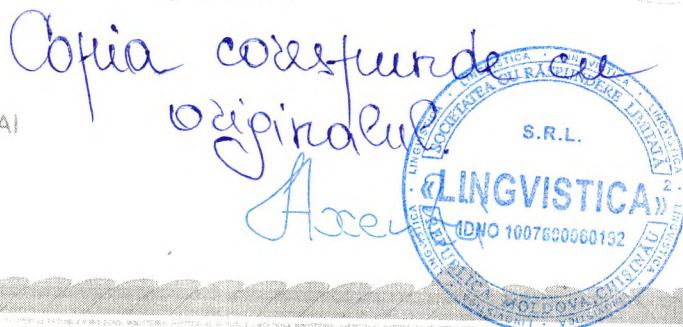 Copia corespunde cu
originalul.
AI
SOCIETATEA CU RĂSPUNDERE LIMITATĂ
S.R.L.
«LINGVISTICA»
IDNO 1007600060192
REPUBLICA MOLDOVA CHIȘINĂU